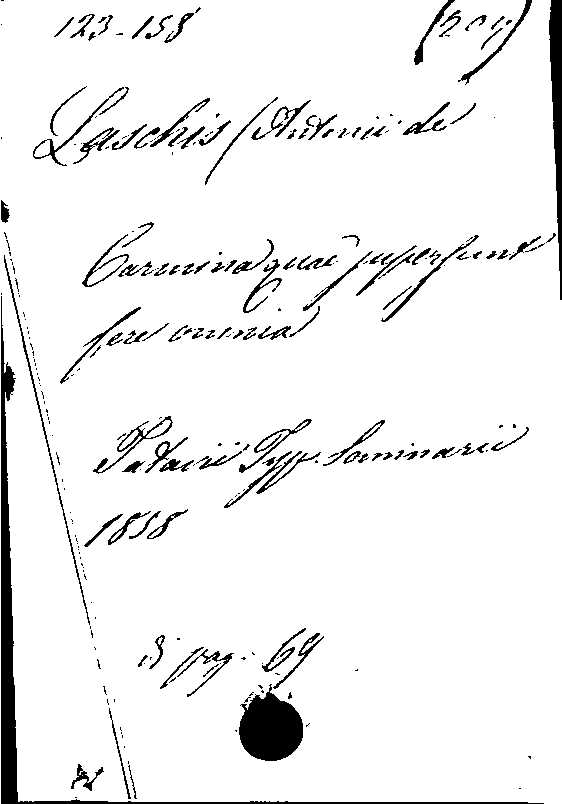 123-158
Laschis (Antonii de
Carmina quae supersunt
fere omnia
Patavii Typ. Seminarii
1858
8 pag. 69